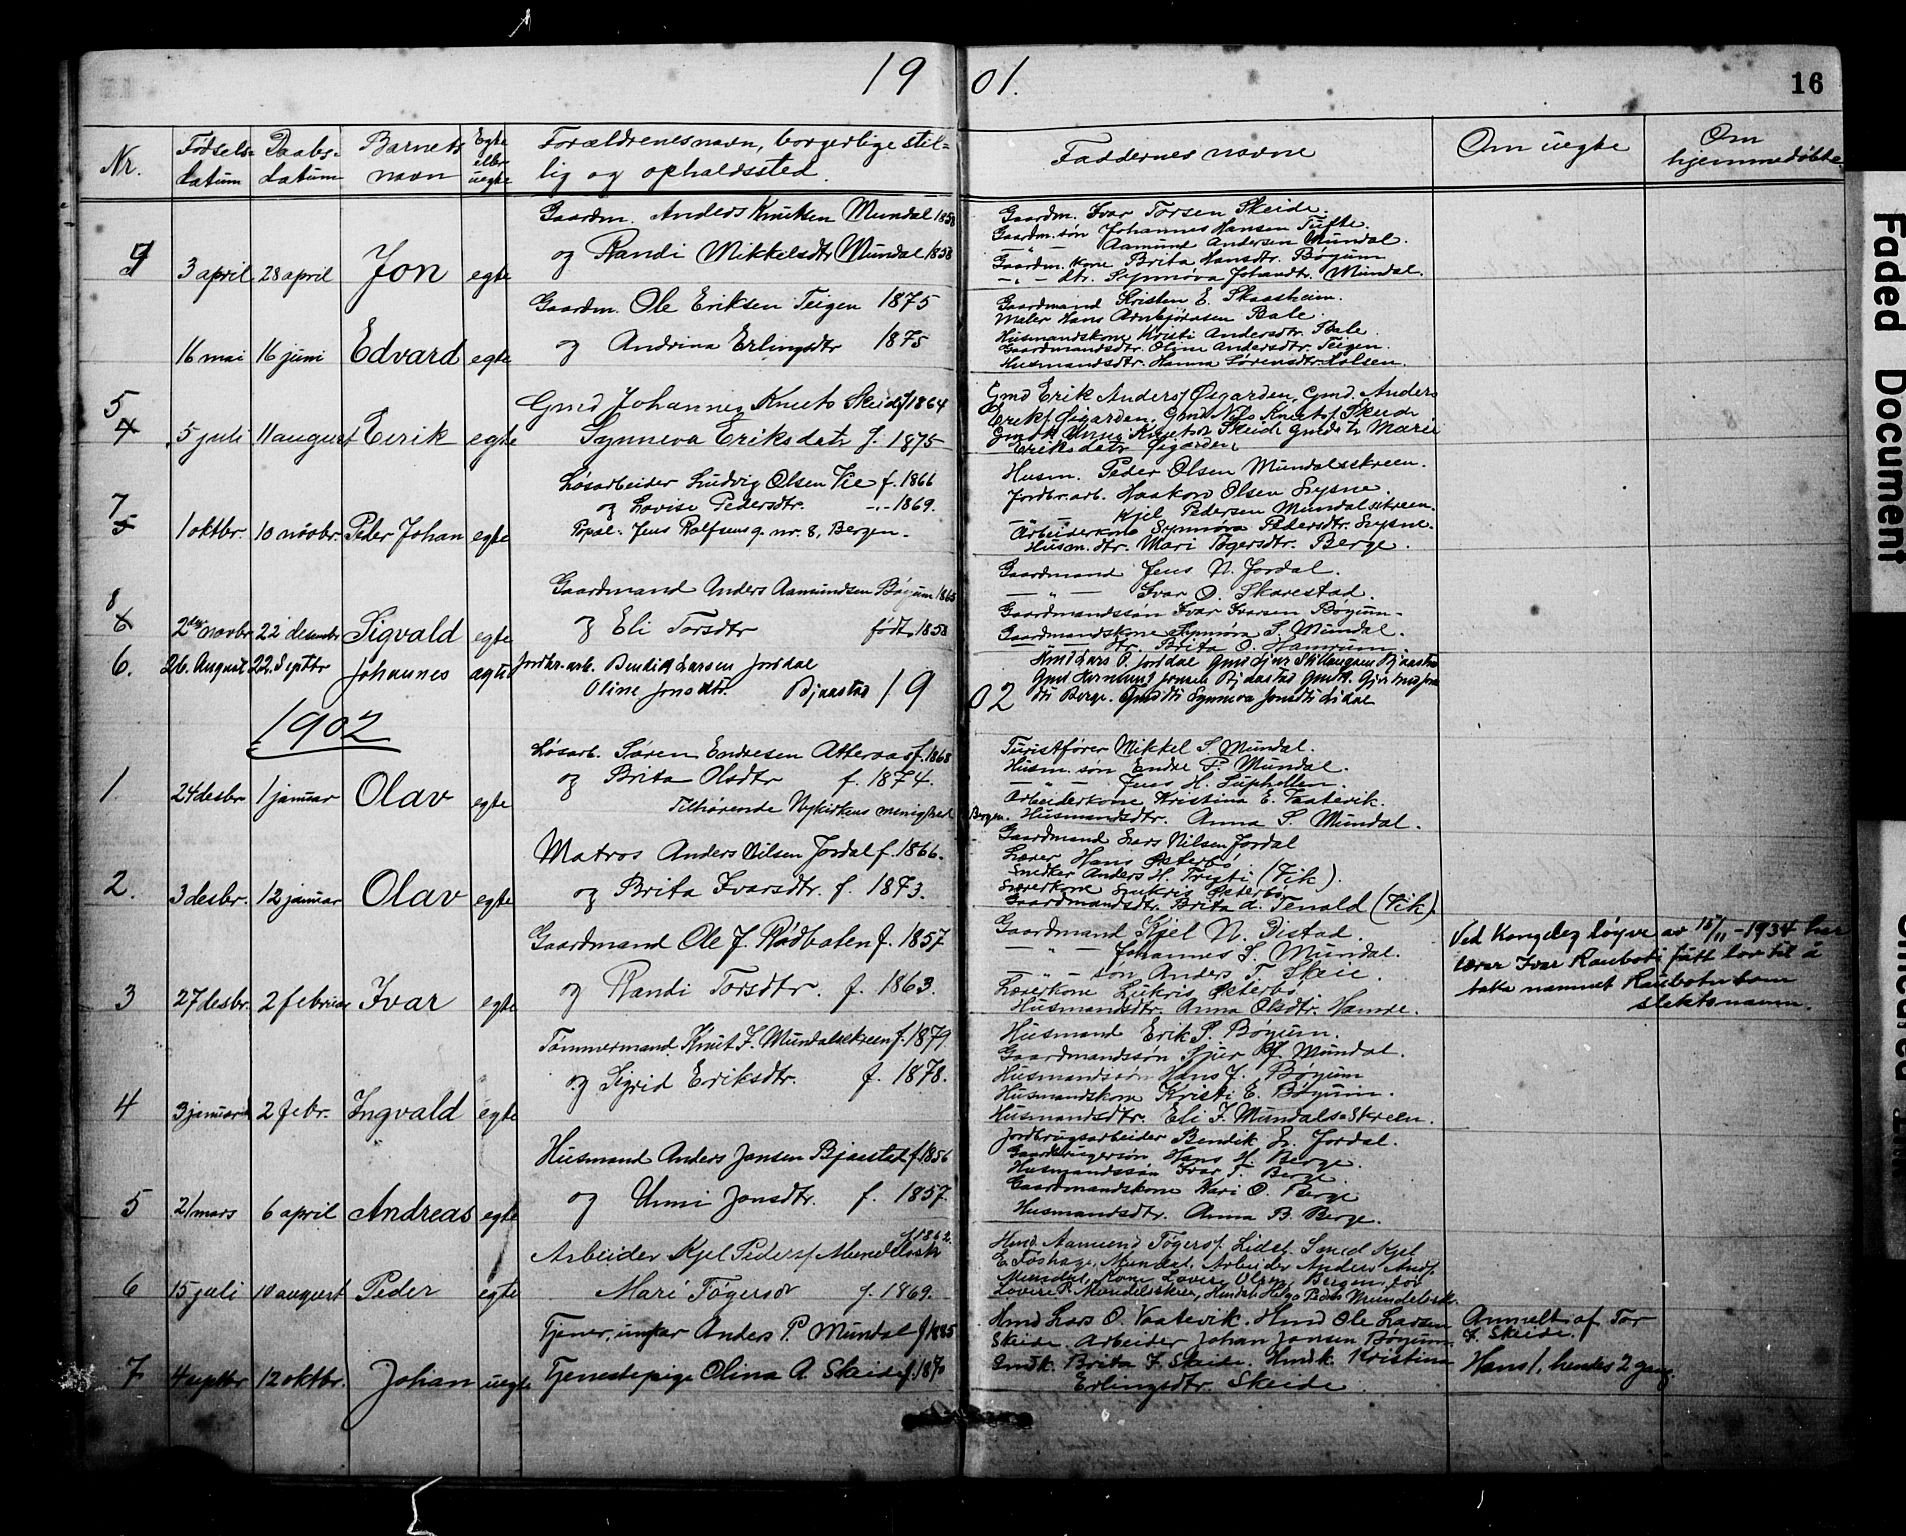 19 01.
16
Nr. Fødsels- datum Daabs- datum Barnets navn Egte eller uegte Forældrenes navn, borgerlige stil- lig og opholdssted. Faddernes navne Om uegte Om hjemmedøbte.
Gaardm. Anders Knutsen Mundal 1858
og Randi Mikkelsdtr Mundal 1858
3 april 28 april Jon egte
Gaardm. Ivar Torsen Skeide.
Gaardm. søn Johannes Hansen Tufte.
— " — Aamund Andersen Mundal.
Gaardm. kone Brita Hansdtr. Bøyum
— " — dtr. Synnøva Johandtr. Mundal.
Gaardm. Ole Eriksen Teigen 1875
og Andrina Erlingsdtr 1875
16 mai 16 juni Edvard egte
Gaardmand Kristen E. Skaasheim.
Maler Hans Arnbjørnsen Bale.
Husmandskone Kristi Andersdtr. Bale.
Gaardmandsdtr. Oline Andersdtr. Teigen.
Husmandsdtr. Hanna Sørensdtr.
5
4 5 juli 11 august Eirik egte
Gmd Johannes Knuts Skeide f 1864
Synneva Eriksdatr f. 1875
Gmd Erik Anders Øygarden, Gmd. Anders
Erikf Øigarden, Gmd Nils Knutsf Skeide
Knutsdtr Skeide Gmdsdtr Mari
Eriksdatr Øigarden
7
5 1 oktbr. 10 novbr. Peder Johan egte
Løsarbeider Ludvig Olsen Vee f. 1866
og Lovise Pedersdtr. -"- 1869.
Opal. Jens Rolfsensg. nr. 8, Bergen.
Husm. Peder Olsen Mundalsskreen.
Jordbr. arb. Haakon Olsen Sysne.
— " — Kjel Pedersen Mundalsskreen.
Arbeiderkone Synnøva Pedersdtr. Sysne.
Husm. dtr. Mari Tøgersdtr. Berge.
8
6 2den novbr 22 desembr Sigvald egte
Gaardmand Anders Aamundsen Bøyum 1865
og Eli Torsdtr født 1858
Gaardmand Jens N. Jordal.
— " — Ivar O. Skarestad.
Gaardmandssøn Ivar Ivarsen Bøyum.
Gaardmandskone Synnøva S. Mundal.
— " — dtr. Brita O. Hamrum.
6. 26. August 22. Septbr Johannes ægte
Jordbr. arb. Bendik Larsen Jordal
Oline Jonsdtr. Bjaastad
Hmd Lars O. Jordal Gmd Bjaastad
Gmd Jonsen Bjaastad Gmdk.
dtr Berge. Gmddtr Synneva Jonsdtr Lidal
19 02
1902
1 24 desbr. 1 januar Olav egte
Løsarb. Søren Endresen Atteraas f. 1868
og Brita Olsdtr f. 1874.
Tilhørende Nykirkens menighed Bergen.
Turistfører Mikkel S. Mundal.
Husm. søn Endre P. Mundal.
— " — Jens H. Supphellen.
Arbeiderkone Kristina E. Taatevik.
Husmandsdtr. Anna S. Mundal.
2. 3 desbr. 12 januar Olav egte
Matros Anders Nilsen Jordal f. 1866.
og Brita Ivarsdtr. f. 1873.
Gaardmand Lars Nilsen Jordal
Lærer Hans Østerbø
Snedker Anders H. Tryti (Vik).
Lærerkone Lukris Østerbø
Gaardmandsdtr. Brita A. Tenald (Vik).
3 27 desbr. 2 februar Ivar egte
Gaardmand Ole J. Rødbaten f. 1857
og Randi Torsdtr. f. 1863.
Gaardmand Kjel N. Distad.
— " — Johannes S. Mundal.
— " — søn Anders T. Skeie.
Lærerkone Lukris Østerbø
Husmandsdtr. Anna Olsdtr. Hamre.
Ved Kongeleg løyve av 15/11-1934 har
lærar Ivar Rauboti fått lov til å
taka namnet Raubotn som
slektsnavn.
4 9 januar 2 febr. Ingvald egte
Tømmermand Knut J. Mundalsskreen f. 1879
og Sigrid Eriksdtr. f. 1878.
Husmand Erik S. Bøyum.
Gaardmandssøn Sjur M. Mundal.
Husmandssøn Hans J. Bøyum
Husmandskone Kristi E. Bøyum.
Husmandsdtr. Eli J. Mundals-skreen.
5 21 mars 6 april Andreas egte
Husmand Anders Jonsen Bjaastad f. 1856
og Unni Jonsdtr. f. 1857.
Jordbrugsarbeider Bendik L. Jordal.
Gaardbrugersøn Hans H. Berge.
Husmandssøn Ivar T. Berge.
Gaardmandskone Kari O. Berge
Husmandsdtr. Anna B. Berge.
6 15 juli 10 august Peder egte
Arbeider Kjel Pedersf Mundalsskr f 1862.
Mari Tøgersdr f. 1869.
Hmd. Aamund Tøgersf. Lidel. Smed Kjel
E. Mundal, Arbeider Anders Andf.
Mundal, Kone Lovise Olsen, Bergen, for
Lovise P. Mundalsskrei, Hmdsdtr Helga Pedrsdtr Mundalsskr.
7 4 septbr 12 oktbr. Johan uegte
Tjener, ungkar Anders P. Mundal f 1885
Tjenestepige Olina A. Skeide f. 1870
Hmd Lars O. Vaatevik. Hmd Ole Larsen
Skeide. Arbeider Johan Jonsen Bøyum.
Gmdk. Brita J. Skeide. Hmdk. Kristina
Erlingsdtr. Skeide.
Anmelt af Tor
J. Skeide.
Hans 1, hendes 2 gang.
Faded Document